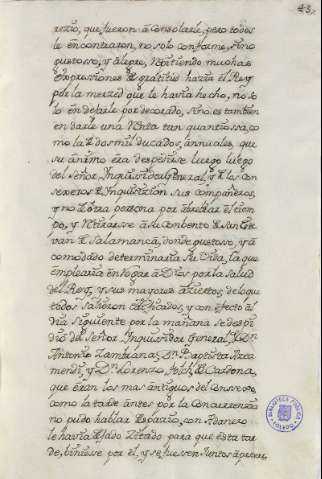 43.
rario, que fueron â consolarle, pero todos
le encontraron, no solo conforme, sino
gustoso, y alegre, repitiendo muchas
expresiones de gratitud hazia el Rey
por la merzed que le havia hecho, no so
lo en dejarle por decorado, sino es tambien
en darle una renta tan quantiosa, co
mo la de dos mil ducados, annuales, que
su animo era despedirse luego luego
del señor Inquisidor General, y de los con
sexeros de Inquisicion sus compañeros,
y no de otra persona por abreviar el tiem
po, y retirarse â su combento de San Este
van de Salamanca, donde gustoso, y a
comodado determinaria su vida, la que
emplearia en rogar â Dios por la salud
del Rey, y sus mayores aziertos, de lo que
todos salieron edificados, y con efecto al
dia siguiente por la mañana se despi
dio del señor Inquisidor General, de Dn
Antonio Zambrana, Dn Baptista Arza
mendi, y Dn Lorenzo Folch de Cardona,
que eran los mas antiguos del Consexo,
como la tarde antes por la Concurrenzia
no pudo hablar despazio, con
le havia dejado zitado para que esta tar
de, biniesse por el, y se fuesen juntos â
BIBLIOTECA PUBLICA